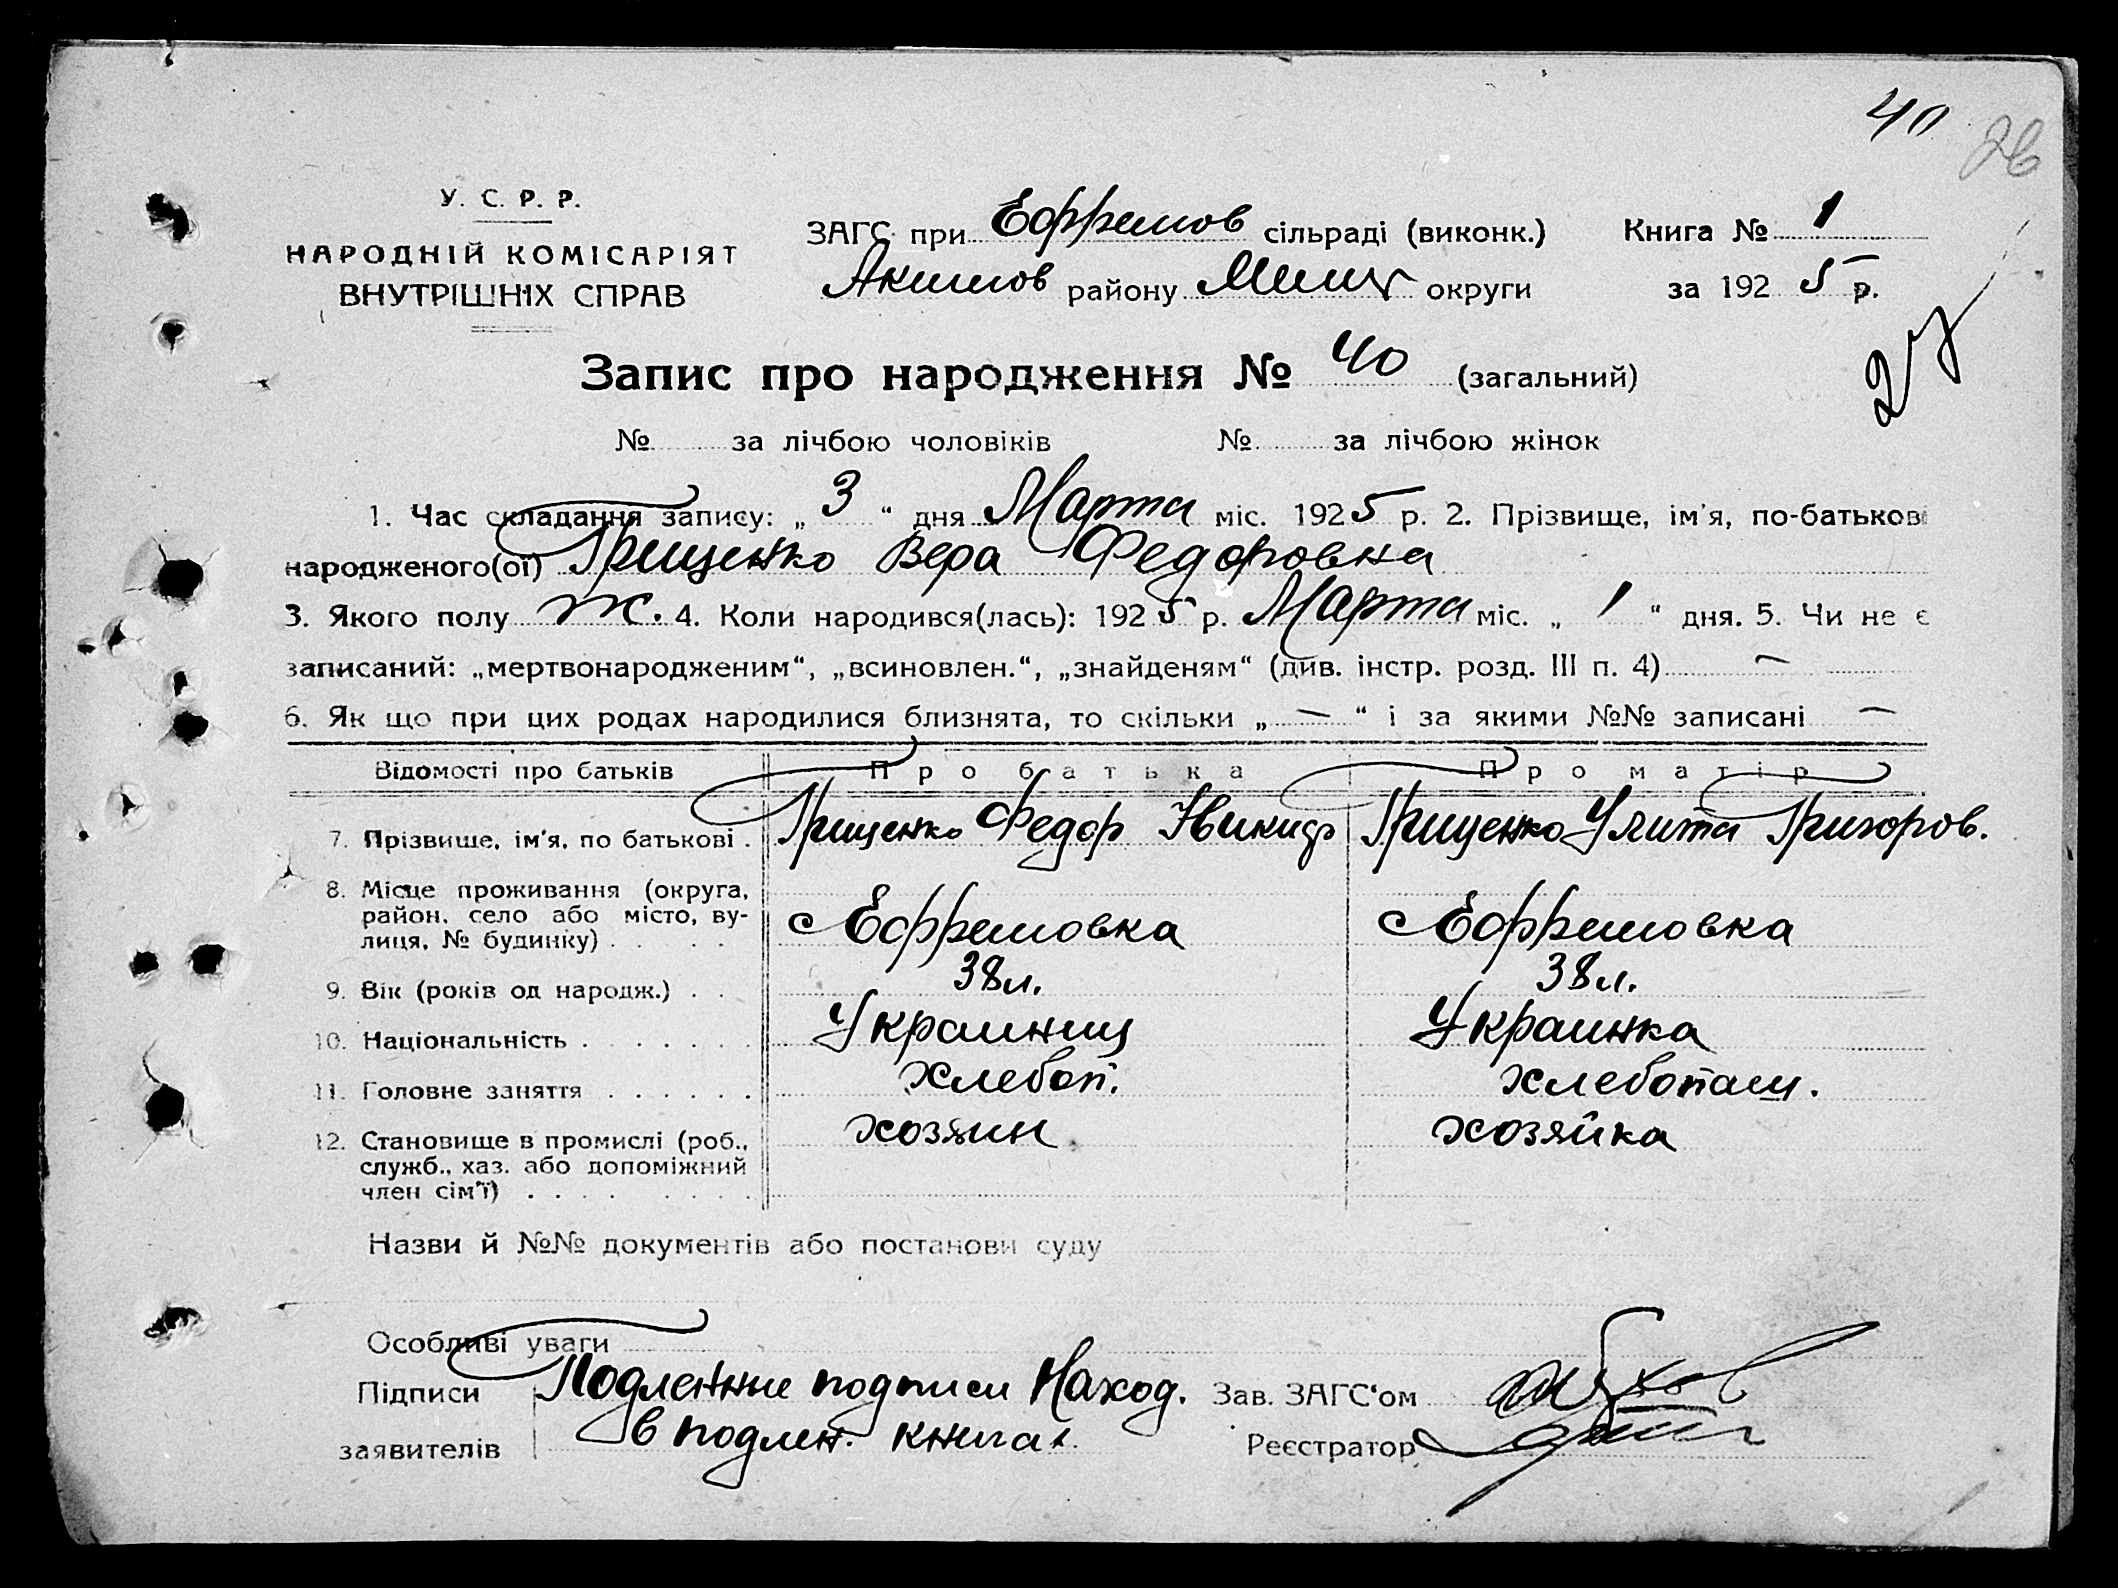 40
26
У. С. Р. Р.
НАРОДНІЙ КОМІСАРІЯТ
ВНУТРІШНІХ СПРАВ
ЗАГС при Ефремов сільраді (виконк.)
Акимов району Мелит округи
Книга № 1
за 192 5 р.
27
Запис про народження № 40 (загальний)
№ за лічбою чоловіків № за лічбою жінок
1. Час складання запису: „ 3 “ дня Марта міс. 1925 р. 2. Прізвище, ім'я, по-батькові
народженого(ої) Грищенко Вера Федоровна
3. Якого полу ж. 4. Коли народився(лась): 1925 р. Марта міс. „ 1 “ дня. 5. Чи не є
записаний: „мертвонародженим“, „всиновлен.“, „знайденям“ (див. інстр. розд. III п. 4) —
6. Як що при цих родах народилися близнята, то скільки „ — “ і за якими №№ записані —
Відомості про батьків Про батька Про матір
7. Прізвище, ім'я, по батькові . Грищенко Федор Грищенко Улита Григоров.
8. Місце проживання (округа,
район, село або місто, ву-
лиця, № будинку) . . . . с Ефремовка с Ефремовка
9. Вік (років од народж.) . . 38 л. 38 л.
10. Національність . . . . . . . Украинец Украинка
11. Головне заняття . . . . . . хлебоп. хлебопаш.
12. Становище в промислі (роб.,
служб., хаз. або допоміжний
член сім'ї) . . . . . . . . хозяин хозяйка
Назви й №№ документів або постанови суду
Особливі уваги
Підписи
заявителів
Подленные подписи Наход.
в подлен. книгах
Зав. ЗАГС'ом
Реєстратор